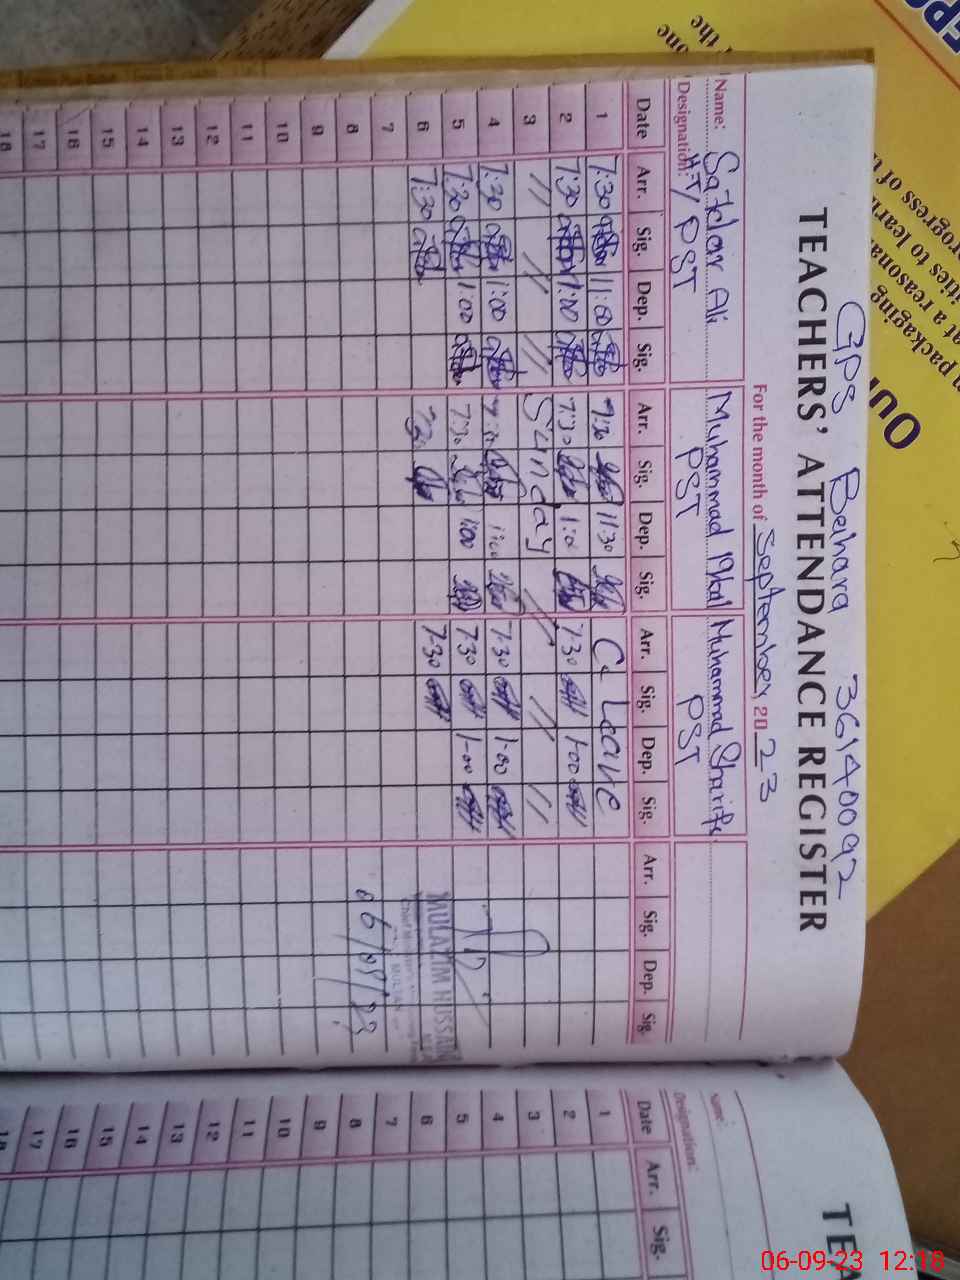 GPS Belhara 36140092
TEACHERS' ATTENDANCE REGISTER
For the month of September, 2023
Name: Safdar Ali Muhammad Iqbal Muhammad Sharif
Designation: H.T/PST PST PST
Date Arr. Sig. Dep. Sig. Arr. Sig. Dep. Sig. Arr. Sig. Dep. Sig. Arr. Sig. Dep. Sig.
1 7:30 11:30 7:30 11:30 C. Leave
2 7:30 1:00 7:30 1:0 7:30 1-00
3 // // // Sunday // // //
4 7:30 1:00 7:30 1:00 7:30 1-00
5 7:30 1:00 7:30 1:00 7:30 1-00
6 7:30 7:30 7-30
MULAZIM HUSSAIN
MULTAN
7
8 06/09/23
9
10
11
12
13
14
15
16
17
18
TEA
Name:
Designation:
Date Arr. Sig.
1
2
3
4
5
6
7
8
9
10
11
12
13
14
15
16
17
18
OUR
packaging
at a reasona
ities to learn
rogress of t
the
one
06-09-23 12:18